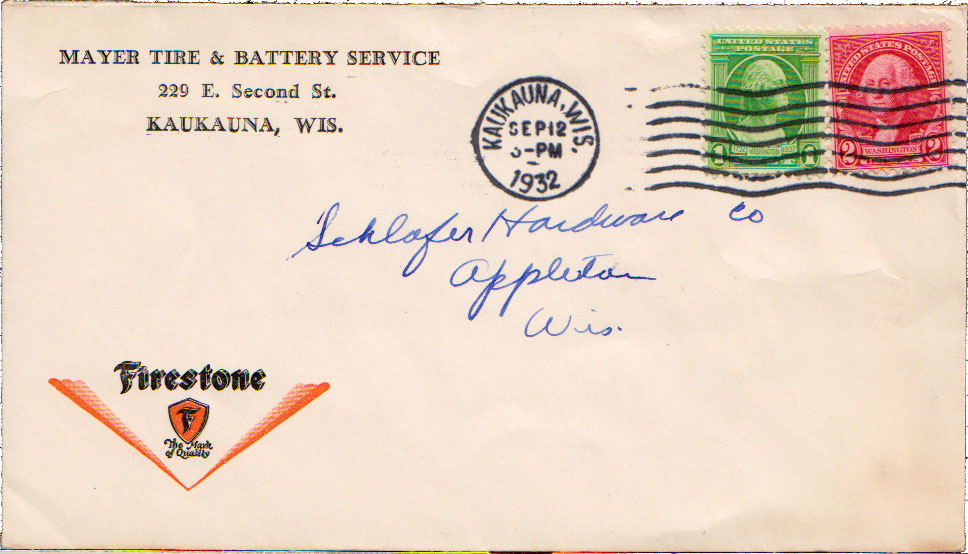 MAYER TIRE & BATTERY SERVICE
229 E. Second St.
KAUKAUNA, WIS.
KAUKAUNA, WIS.
SEP 12
-PM
1932
UNITED STATES
POSTAGE
1732 WASHINGTON 1932
1 1
UNITED STATES POSTAGE
WASHINGTON
2 2
Schlafer Hardware Co
Appleton
Wis.
Firestone
F
The Mark
of Quality